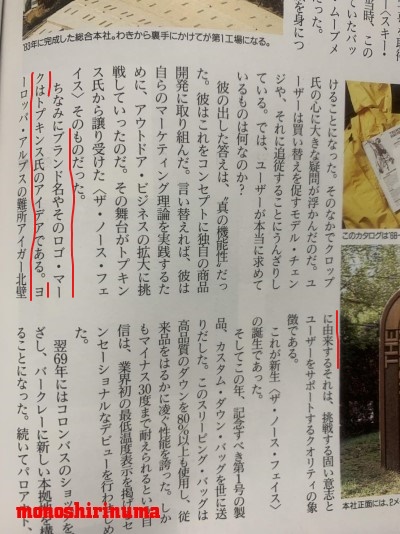 '83年に完成した総合本社。わきから裏手にかけてが第1工場になる。
けることになった。そのなかでクロップ
氏の心に大きな疑問が浮かんだのだ。ユ
ーザーは買い替えを促すモデル・チェン
ジや、それに追従することにうんざりし
ている。では、ユーザーが本当に求めて
いるものは何なのか？
彼の出した答えは、“真の機能性”だっ
た。彼はこれをコンセプトに独自の商品
開発に取り組んだ。言い替えれば、彼は
自らのマーケティング理論を実践するた
めに、アウトドア・ビジネスの拡大に挑
戦していったのだ。その舞台がトプキン
ス氏から譲り受けた〈ザ・ノース・フェ
イス〉そのものだった。
ちなみにブランド名やそのロゴ・マー
クはトプキンス氏のアイデアである。ヨ
ーロッパ・アルプスの難所アイガー北壁
に由来するそれは、挑戦する固い意志と
ユーザーをサポートするクオリティの象
徴である。
これが新生〈ザ・ノース・フェイス〉
の誕生であった。
そしてこの年、記念すべき第1号の製
品、カスタム・ダウン・バッグを世に送
りだした。このスリーピング・バッグは
高品質のダウンを80％以上も使用し、従
来品をはるかに凌ぐ性能を誇った。しか
もマイナス30度まで耐えられるという自
信は、業界初の最低温度表示を掲げ、セ
ンセーショナルなデビューを行わしめ
た。
翌69年にはコロンバスのショップを
ざし、バークレーに新しい本拠地を構
ることになった。続いてパロアルト、
このカタログは'68
THE
本社正面には、2メ
monoshirinuma